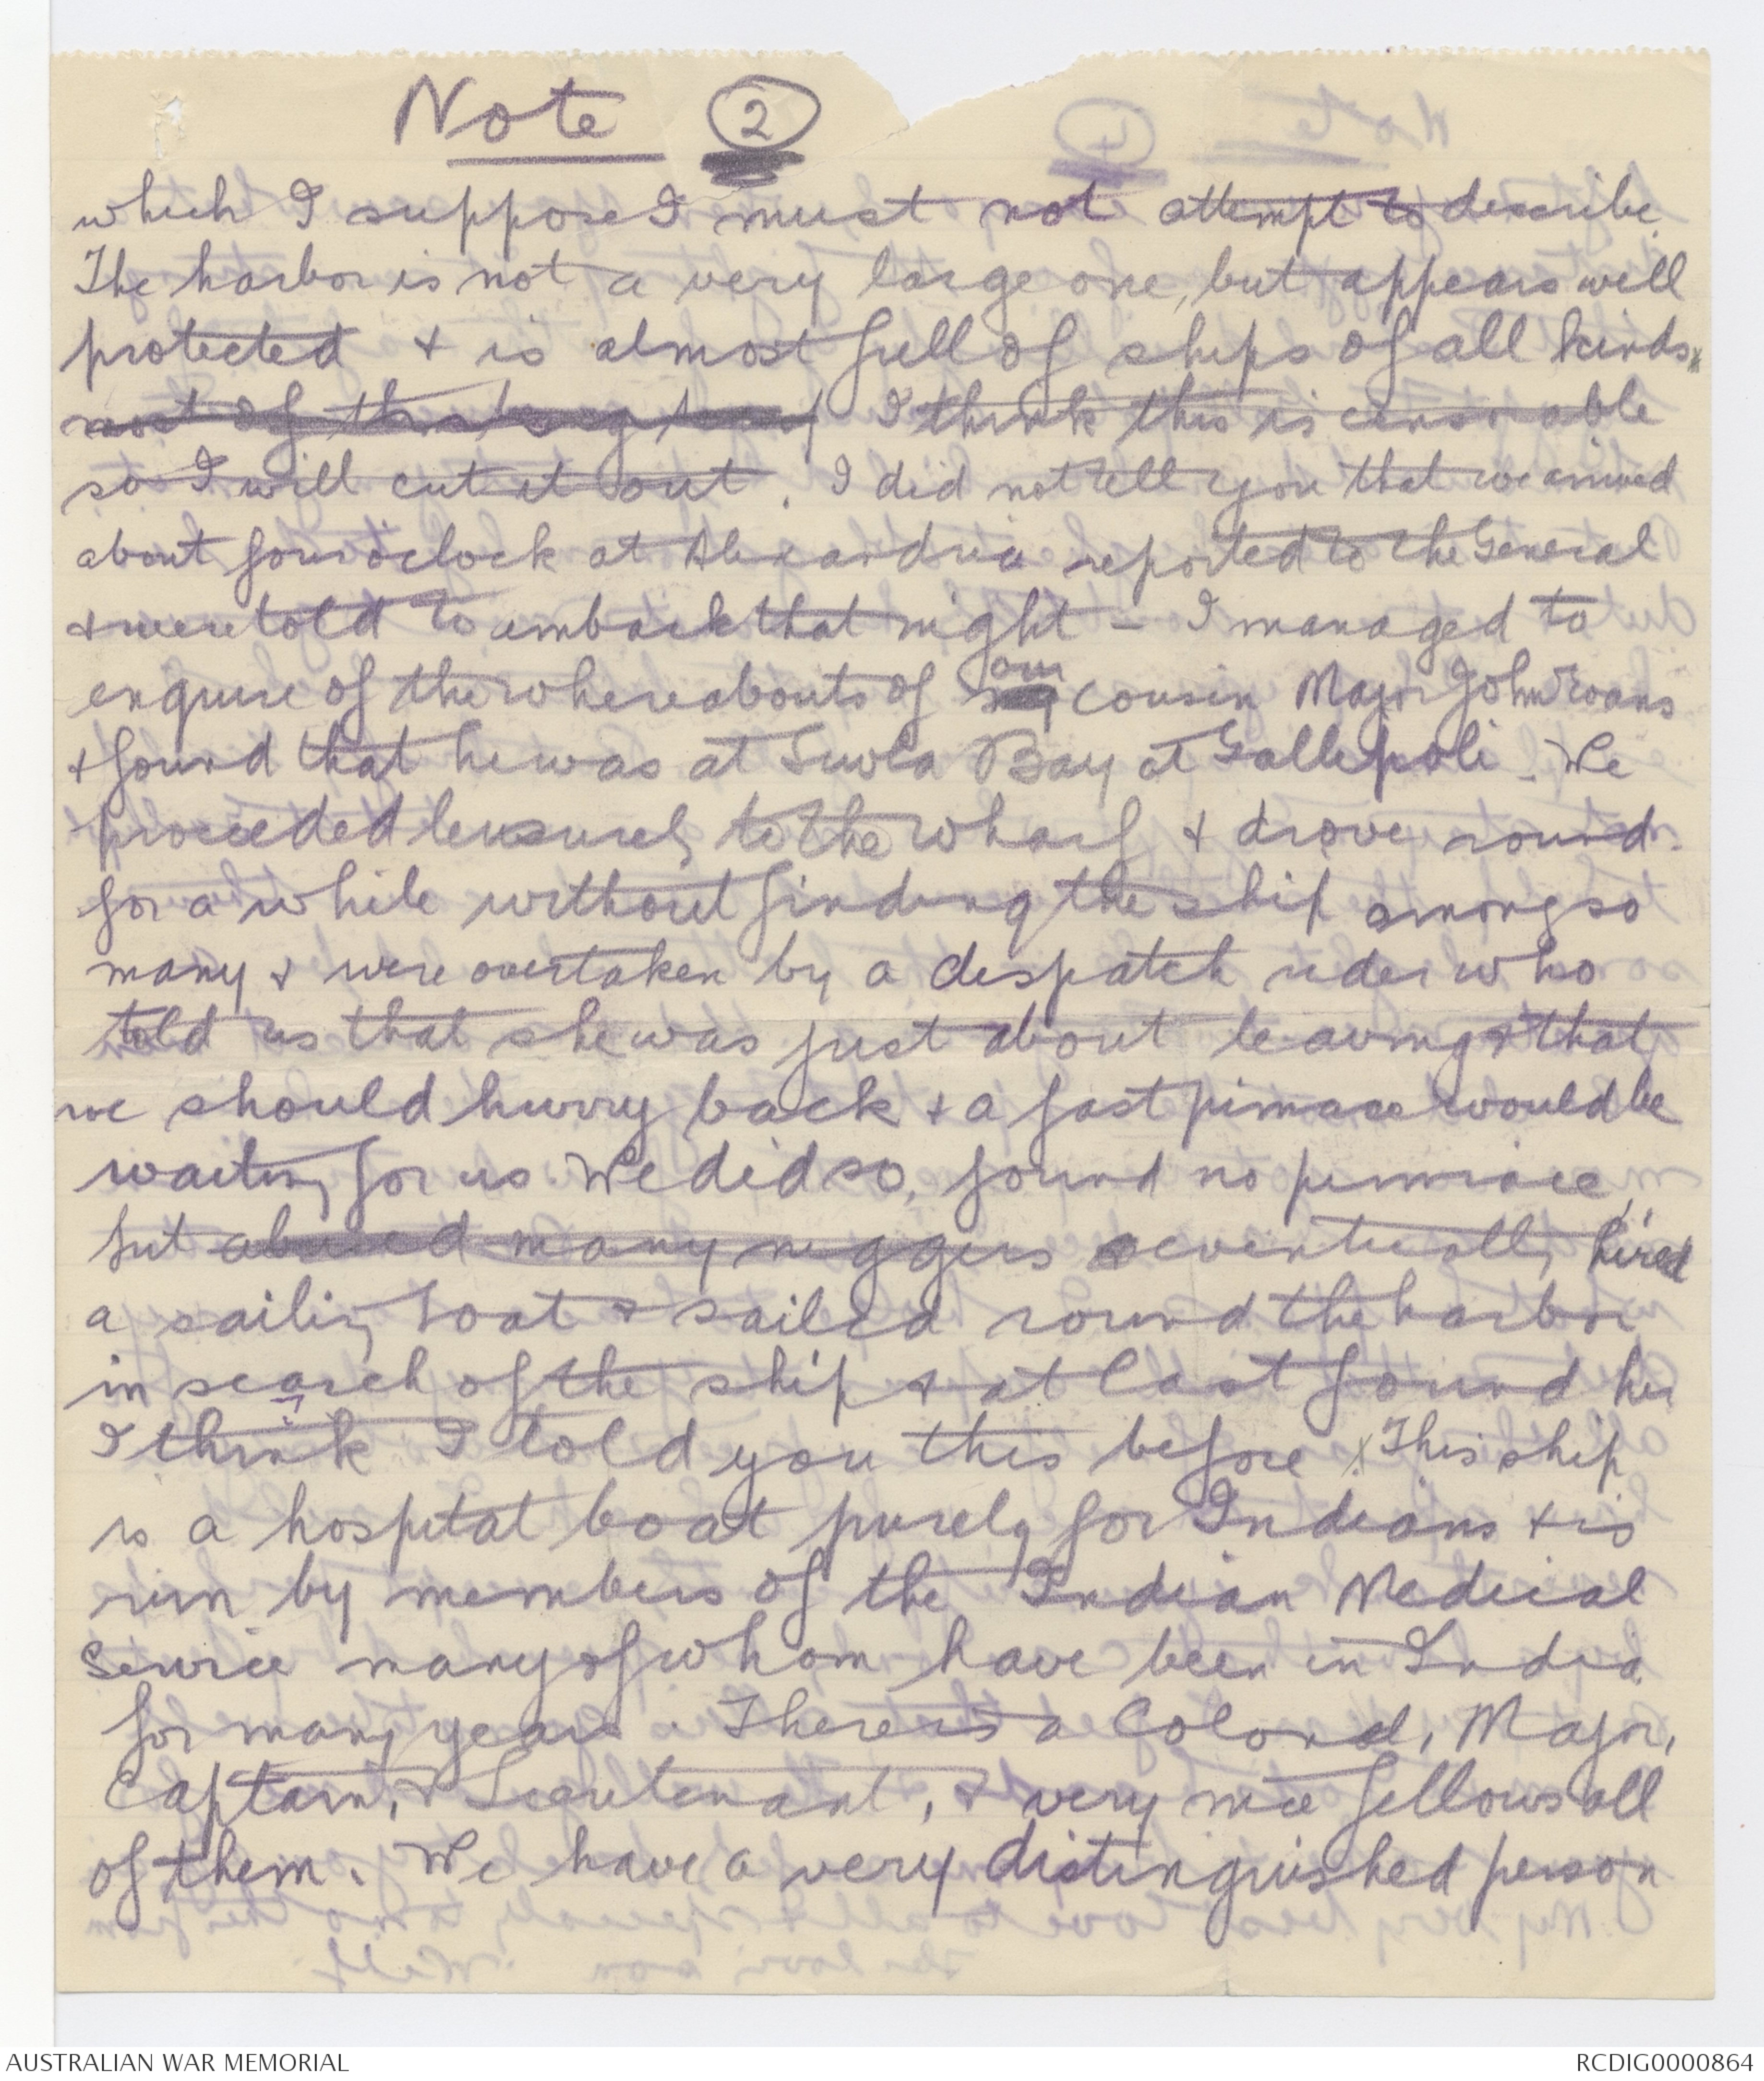 Note 2
which I suppose I must not attempt to describe.
The harbor is not a very large one, but appears well
protected & is almost full of ships of all kinds
I think this is censorable
so I will cut it out. I did not tell you that we arrived
about four o'clock at Alexandria reported to the General
& were told to embark that night - I managed to
enquire of the whereabouts of our cousin Major John Evans
& found that he was at Suvla Bay at Gallepoli. We
proceeded leisurely to the wharf & drove round.
for a while without finding the ship among so
many & were overtaken by a despatch rider who
told us that she was just about leaving & that
we should hurry back & a fast pinnace would be
waiting for us. We did so, found no pinnace,
but abused many niggers & eventually hired
a sailing boat & sailed round the harbor
in search of the ship & at last found her
I think I told you this before. This ship
is a hospital boat purely for Indians & is
run by members of the Indian Medical
Service many of whom have been in India
for many years. There is a Colonel, Major,
Captain, & Lieutenant, & very nice fellows all
of them. We have a very distinguished person
AUSTRALIAN WAR MEMORIAL
RCDIG0000864